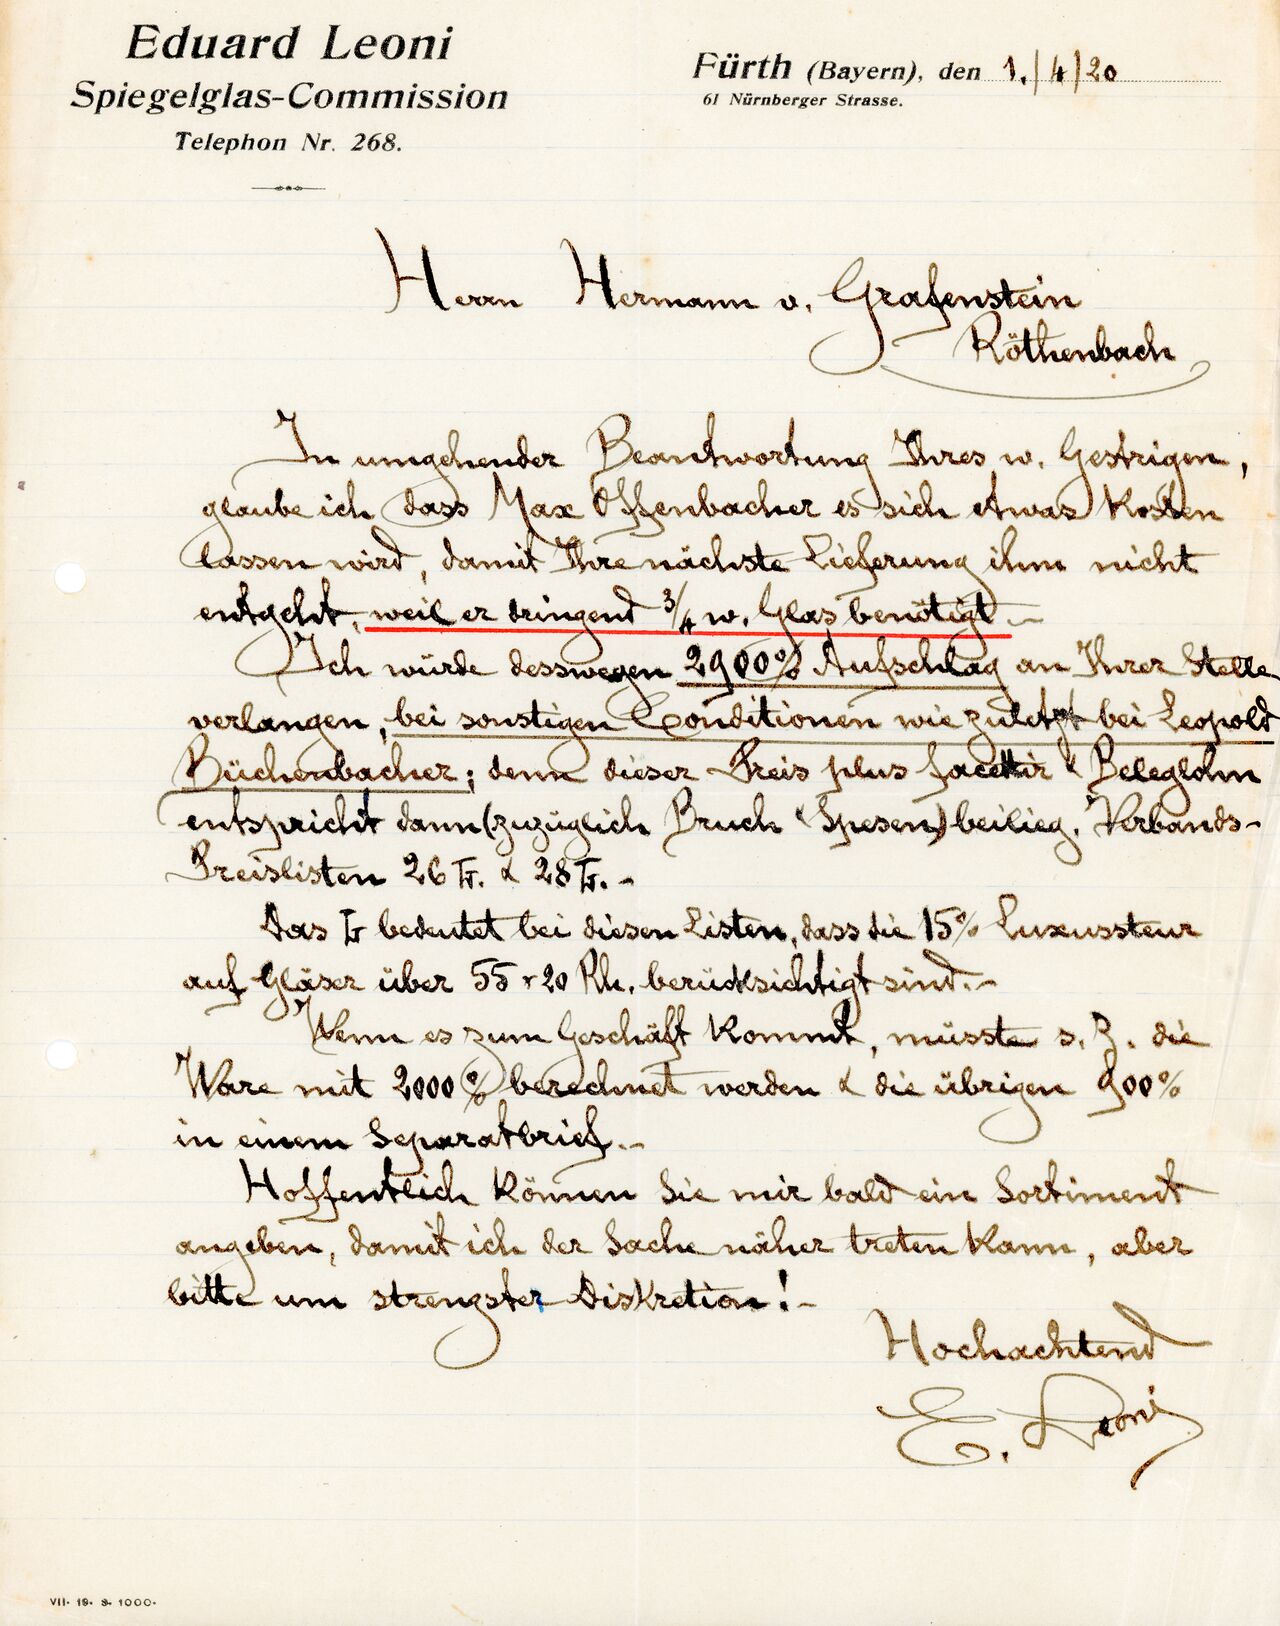 Eduard Leoni
Spiegelglas-Commission
Telephon Nr. 268.
Fürth (Bayern), den 1./4/20
61 Nürnberger Strasse.
Herrn Hermann v. Grafenstein
Röthenbach
In umgehender Beantwortung Ihres w. Gestrigen,
glaube ich dass Max Offenbacher es sich etwas kosten
lassen wird, damit Ihre nächste Lieferung ihm nicht
entgeht, weil er dringend 3/4 w. Glas benötigt.-
Ich würde desswegen 2900% Aufschlag an Ihrer Stelle
verlangen, bei sonstigen Conditionen wie zuletzt bei Leopold
Büchenbacher; denn dieser Preis plus facettir & Beleglohn
entspricht dann (zuzüglich Bruch & Spesen) beilieg. Verbands-
Preislisten 26 L. & 28 L.-
Das L bedeutet bei diesen Listen, dass die 15% Luxussteur
auf Gläser über 55 + 20 Rh. berücksichtigt sind.-
Wenn es zum Geschäft kommt, müsste s. Z. die
Ware mit 2000% berechnet werden & die übrigen 900%
in einem Separatbrief.-
Hoffentlich können Sie mir bald ein Sortiment
angeben, damit ich der Sache näher treten kann, aber
bitte um strengster Diskretion!-
Hochachtend
E. Leoni
VII. 19. S. 1000.